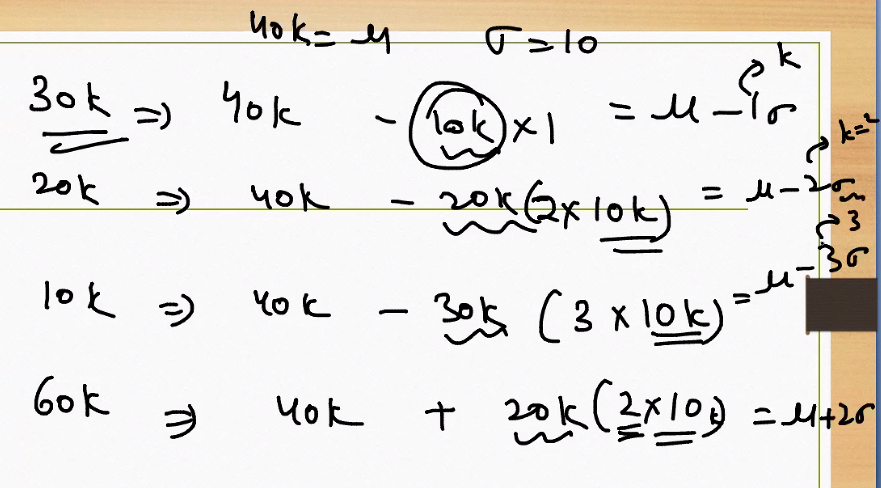 40k = μ σ = 10
30k ⇒ 40k - (10k) × 1 = μ - 1σ k
20k ⇒ 40k - 20k (2 × 10k) = μ - 2σ k=2
10k ⇒ 40k - 30k (3 × 10k) = μ - 3σ 3
60k ⇒ 40k + 20k (2 × 10k) = μ + 2σ